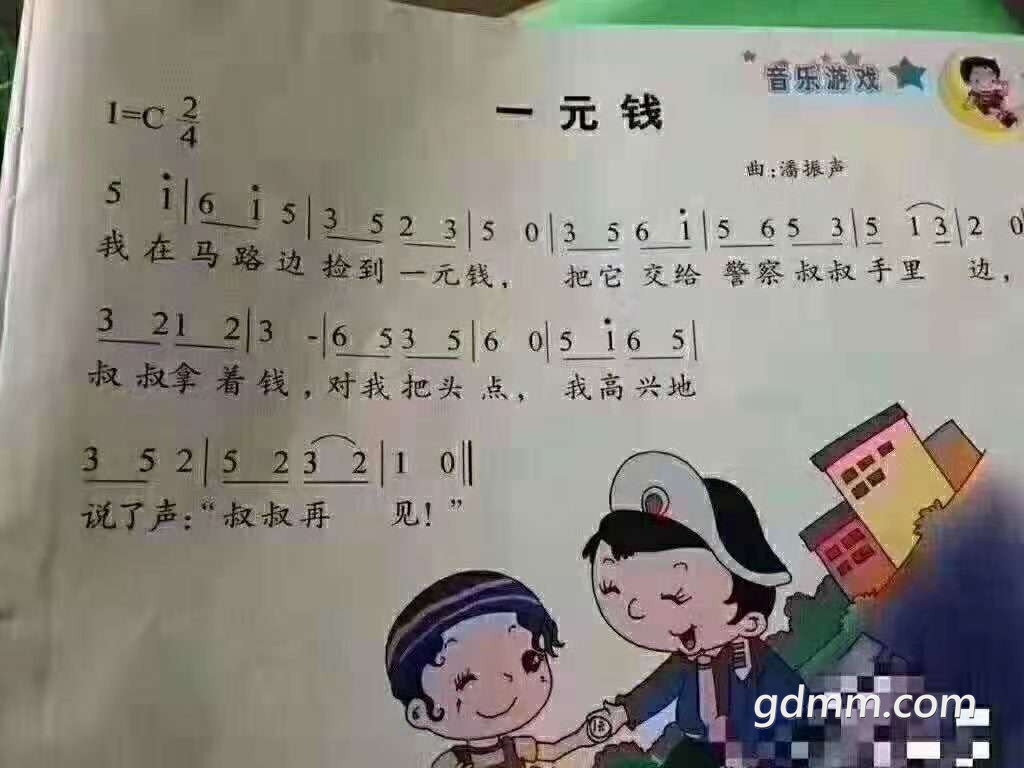 音乐游戏
一元钱
1=C 2/4
曲:潘振声
5 i̇ | 6 i̇ 5 | 3 5 2 3 | 5 0 | 3 5 6 i̇ | 5 6 5 3 | 5 1 3 | 2 0
我在马路边捡到一元钱， 把它交给警察叔叔手里 边，
3 2 1 2 | 3 - | 6 5 3 5 | 6 0 | 5 i̇ 6 5 |
叔叔拿着钱，对我把头点， 我高兴地
3 5 2 | 5 2 3 2 | 1 0 ‖
说了声:“叔叔再 见！”
gdmm.com